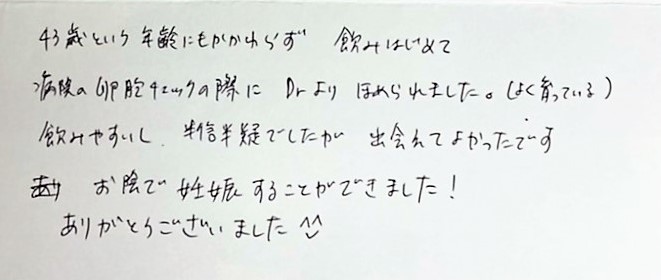 43歳という年齢にもかかわらず 飲みはじめて
病院の卵胞チェックの際に Drより ほめられました。(よく育っている)
飲みやすいし、半信半疑でしたが 出会えてよかったです
お陰で妊娠することができました!
ありがとうございました ^^